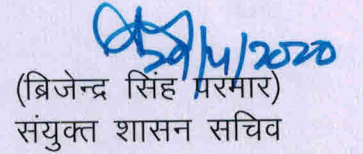 29/4/2020
(बिजेन्द्र सिंह परमार)
संयुक्त शासन सचिव